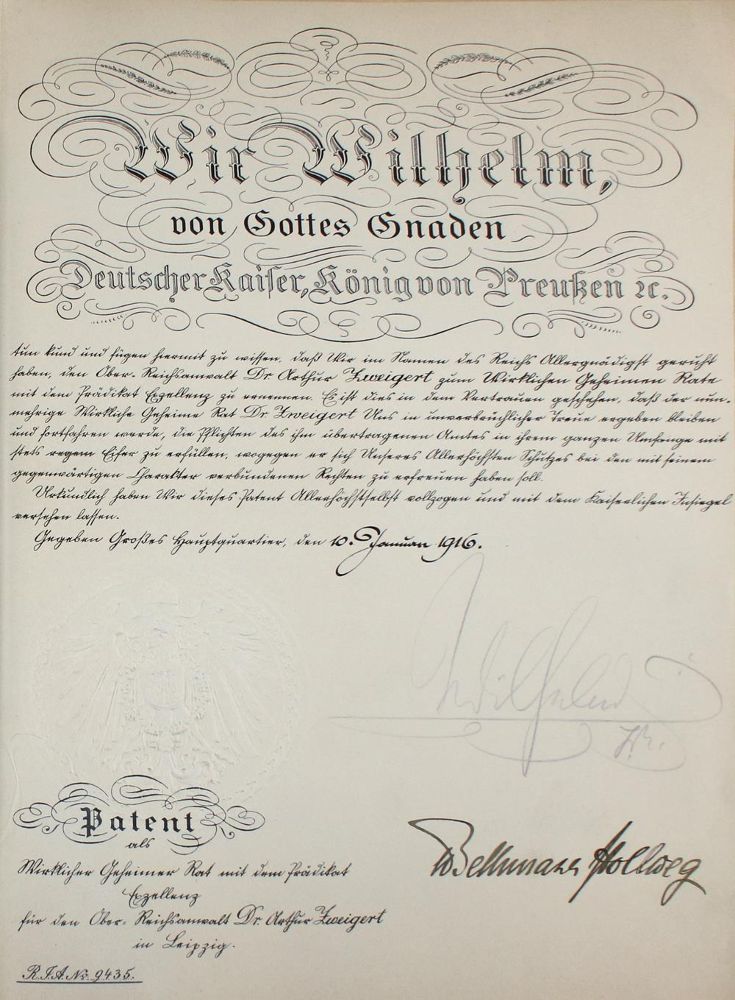 Wir Wilhelm,
von Gottes Gnaden
Deutscher Kaiser, König von Preußen ꝛc.
tun kund und fügen hiermit zu wissen, daß Wir im Namen des Reichs Allergnädigst geruht
haben, den Ober-Reichsanwalt Dr Arthur Zweigert zum Wirklichen Geheimen Rate
mit dem Prädikat Exzellenz zu ernennen. Es ist dies in dem Vertrauen geschehen, daß der nun-
mehrige Wirkliche Geheime Rat Dr Zweigert Uns in unverbrüchlicher Treue ergeben bleiben
und fortfahren werde, die Pflichten des ihm übertragenen Amtes in ihrem ganzen Umfange mit
stets regem Eifer zu erfüllen, wogegen er sich Unseres Allerhöchsten Schutzes bei den mit seinem
gegenwärtigen Charakter verbundenen Rechten zu erfreuen haben soll.
Urkundlich haben Wir dieses Patent Allerhöchstselbst vollzogen und mit dem Kaiserlichen Insiegel
versehen lassen.
Gegeben Großes Hauptquartier, den 10. Januar 1916.
Wilhelm
I.R.
Patent
als
Wirklicher Geheimer Rat mit dem Prädikat
Exzellenz
für den Ober-Reichsanwalt Dr. Arthur Zweigert
in Leipzig.
Bethmann Hollweg
R.J.A. No. 9435.